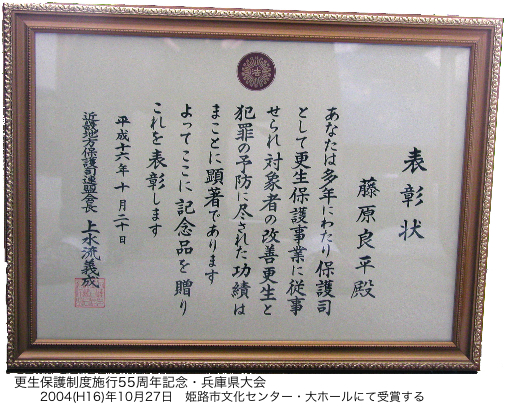 表彰状
藤原良平殿
あなたは多年にわたり保護司
として更生保護事業に従事
せられ対象者の改善更生と
犯罪の予防に尽された功績は
まことに顕著であります
よってここに記念品を贈り
これを表彰します
平成十六年十月二十日
近畿地方保護司連盟会長 上水流義成
更生保護制度施行55周年記念・兵庫県大会
2004(H16)年10月27日 姫路市文化センター・大ホールにて受賞する